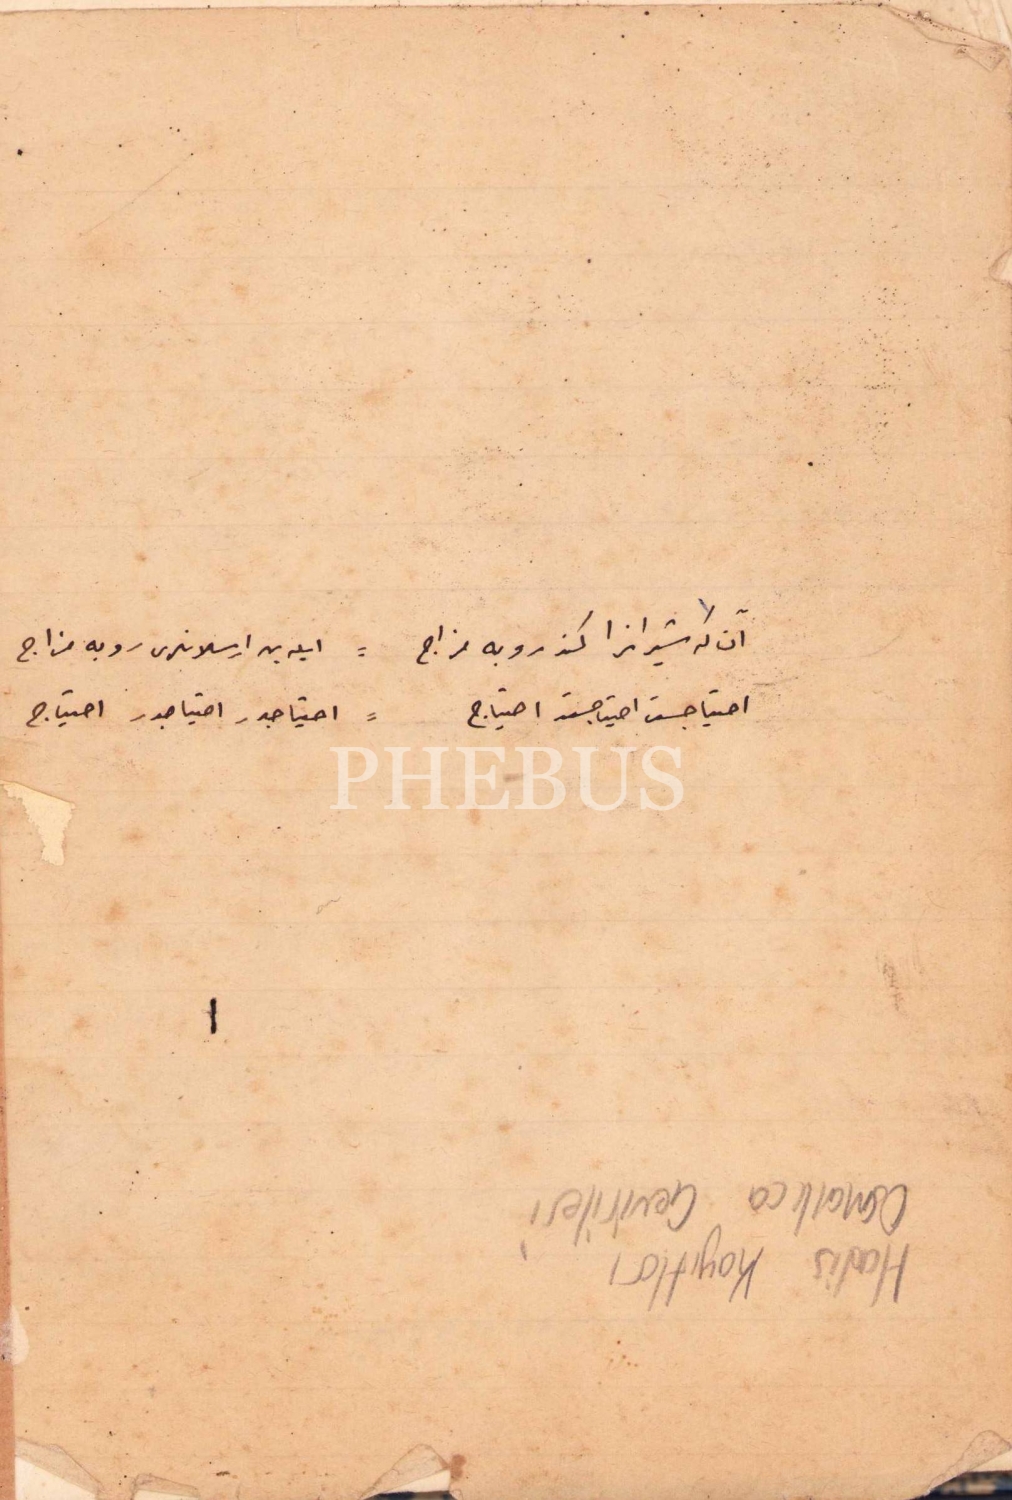 آن که شیرانرا کند روبه مزاج = ایله ین ارسلانلری روبه مزاج
احتیاجست احتیاجست احتیاج = احتیاجدر احتیاجدر احتیاج
PHEBUS
ا
Hadis Kayıtları
Osmanlıca Çevirileri